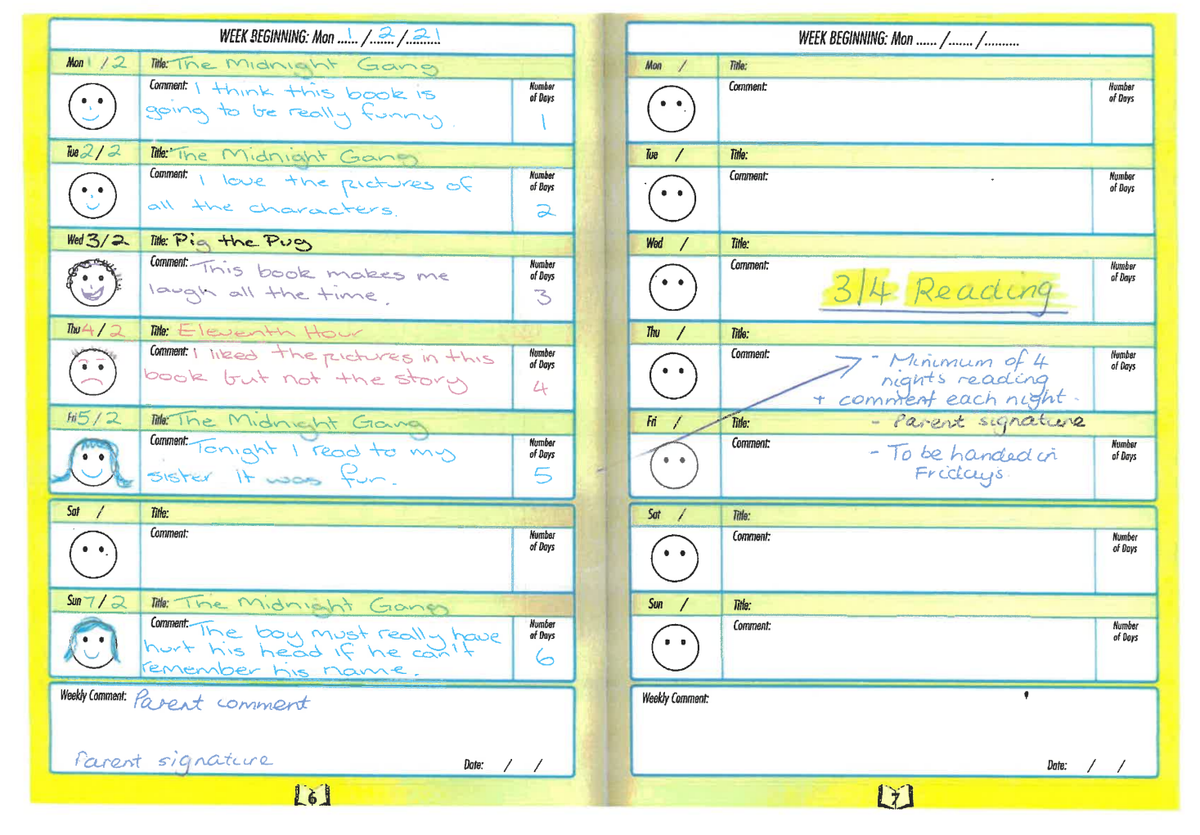 WEEK BEGINNING: Mon ...1.../...2.../...21...
Mon 1/2 Title: The Midnight Gang
Comment: I think this book is
going to be really funny.
Number
of Days
1
Tue 2/2 Title: The Midnight Gang
Comment: I love the pictures of
all the characters.
Number
of Days
2
Wed 3/2 Title: Pig the Pug
Comment: This book makes me
laugh all the time.
Number
of Days
3
Thu 4/2 Title: Eleventh Hour
Comment: I liked the pictures in this
book but not the story
Number
of Days
4
Fri 5/2 Title: The Midnight Gang
Comment: Tonight I read to my
sister it was fun.
Number
of Days
5
Sat / Title:
Comment:
Number
of Days
Sun 7/2 Title: The Midnight Gang
Comment: The boy must really have
hurt his head if he can't
remember his name.
Number
of Days
6
Weekly Comment: Parent comment
Parent signature
Date: / /
6
WEEK BEGINNING: Mon ....../....../..........
Mon / Title:
Comment:
Number
of Days
Tue / Title:
Comment:
Number
of Days
Wed / Title:
Comment:
Number
of Days
3/4 Reading
Thu / Title:
Comment:
Number
of Days
- Minimum of 4
nights reading
+ comment each night.
Fri / Title:
- Parent signature
Comment:
Number
of Days
- To be handed in
Fridays.
Sat / Title:
Comment:
Number
of Days
Sun / Title:
Comment:
Number
of Days
Weekly Comment:
Date: / /
7